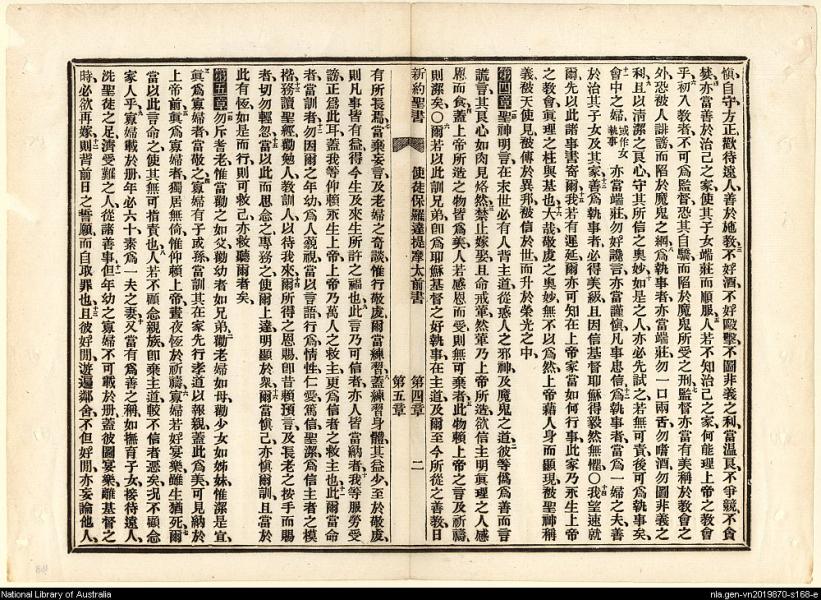 慎自守方正欵待遠人善於施教不好酒不好毆擊不圖非義之利當温良不爭競不貪
婪亦當善於治己之家使其子女端莊而順服人若不知治己之家何能理上帝之教會
乎初入教者不可爲監督恐其自驕而陷於魔鬼所受之刑監督亦當有美稱於教會之
外恐被人誹謗而陷於魔鬼之網爲執事者亦當端莊勿一口兩舌勿嗜酒勿圖非義之
利且以清潔之良心守其所信之奧妙如是之人亦必先試之若無可責後可爲執事矣
會中之婦或作女執事亦當端莊勿好讒言亦當謹慎凡事忠信爲執事者當爲一婦之夫善
於治其子女及其家善爲執事者必得美級且因信基督耶穌得毅然無懼〇我望速就
爾先以此諸事書寄爾我若有遲延爾亦可知在上帝家當如何行事此家乃永生上帝
之教會眞理之柱與基也大哉敬虔之奧妙無不以爲然上帝藉人身而顯現被聖神稱
義被天使見被傳於異邦被信於世而升於榮光之中
第四章聖神明言在末世必有人背主道從惑人之邪神及魔鬼之道彼等僞爲善而言
謊言其良心如肉見烙然禁止嫁娶且命戒葷然葷乃上帝所造欲信主明眞理之人感
恩而食蓋上帝所造之物皆爲美人若感恩而受則無可棄者此物賴上帝之言及祈禱
則潔矣〇爾若以此訓兄弟卽爲耶穌基督之好執事在主道及爾至今所從之善教日
新約聖書 使徒保羅達提摩太前書 第四章 第五章 二
有所長焉當棄妄言及老婦之奇談惟行敬虔爾當練習蓋練習身體其益少至於敬虔
則凡事皆有益得今生及來生所許之福也此言乃可信者亦人皆當納者我等服勞受
謗正爲此耳蓋我等仰賴永生上帝上帝乃萬人之救主更爲信者之救主也此爾當命
者當訓者勿因爾之年幼爲人藐視當以言語行爲情性仁愛篤信聖潔爲信主者之模
楷務讀聖經勸勉人教訓人以待我來爾所得之恩賜卽昔賴預言及長老之按手而賜
者切勿輕忽當以此而思念之專務之使爾上達明顯於衆爾當慎己亦慎爾訓且當於
此有恆如是而行則可救己亦救聽爾者矣
第五章勿斥耆老惟當勸之如父勸幼者如兄弟勸老婦如母勸少女如姊妹惟潔是宜
眞爲寡婦者當敬之寡婦有子或孫當訓其在家先行孝道以報親蓋此爲美可見納於
上帝前眞爲寡婦者獨居無倚惟仰賴上帝晝夜恆於祈禱寡婦若好宴樂雖生猶死爾
當以此言命之使其無可指責也人若不顧念親族卽棄主道較不信者惡矣況不顧念
家人乎寡婦載於册年必六十素爲一夫之妻又當有爲善之稱如撫育子女接待遠人
洗聖徒之足濟受難之人從諸善事但年幼之寡婦不可載於册蓋彼圖宴樂離基督之
時必欲再嫁則背前日之誓願而自取罪也且彼好閒遊遍鄰舍不但好閒亦妄論他人
National Library of Australia
nla.gen-vn2019870-s168-e